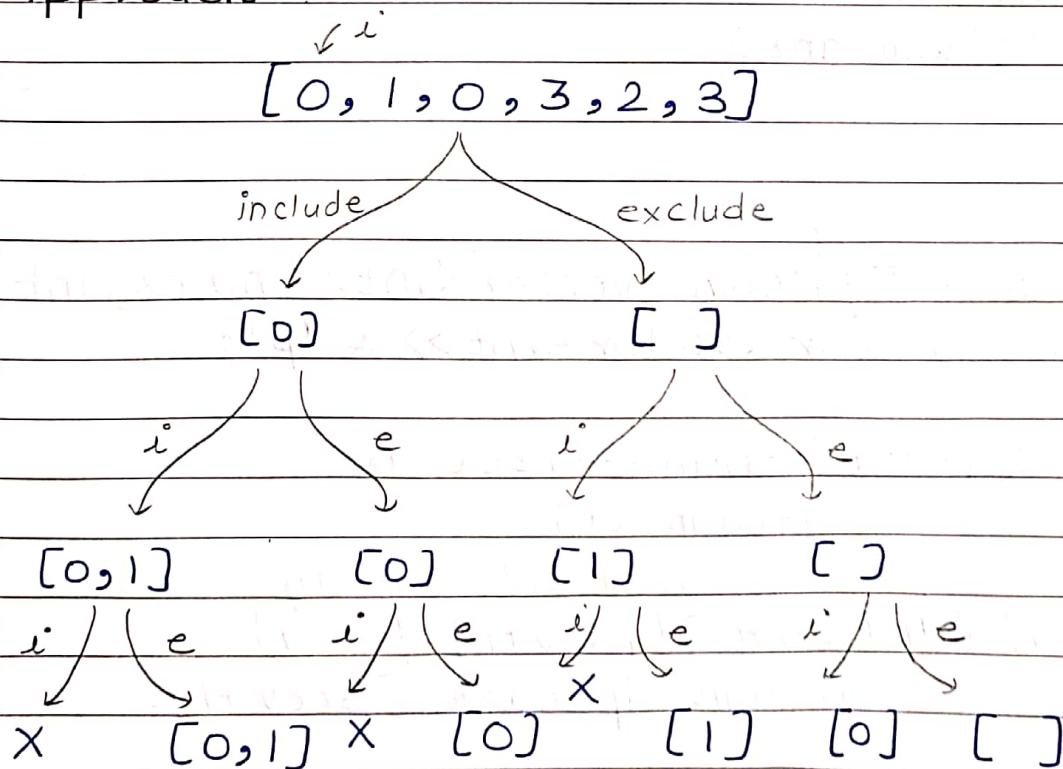 i
[0, 1, 0, 3, 2, 3]
include exclude
[0] [ ]
i e i e
[0,1] [0] [1] [ ]
i e i e i e i e
X
X [0,1] X [0] [1] [0] [ ]